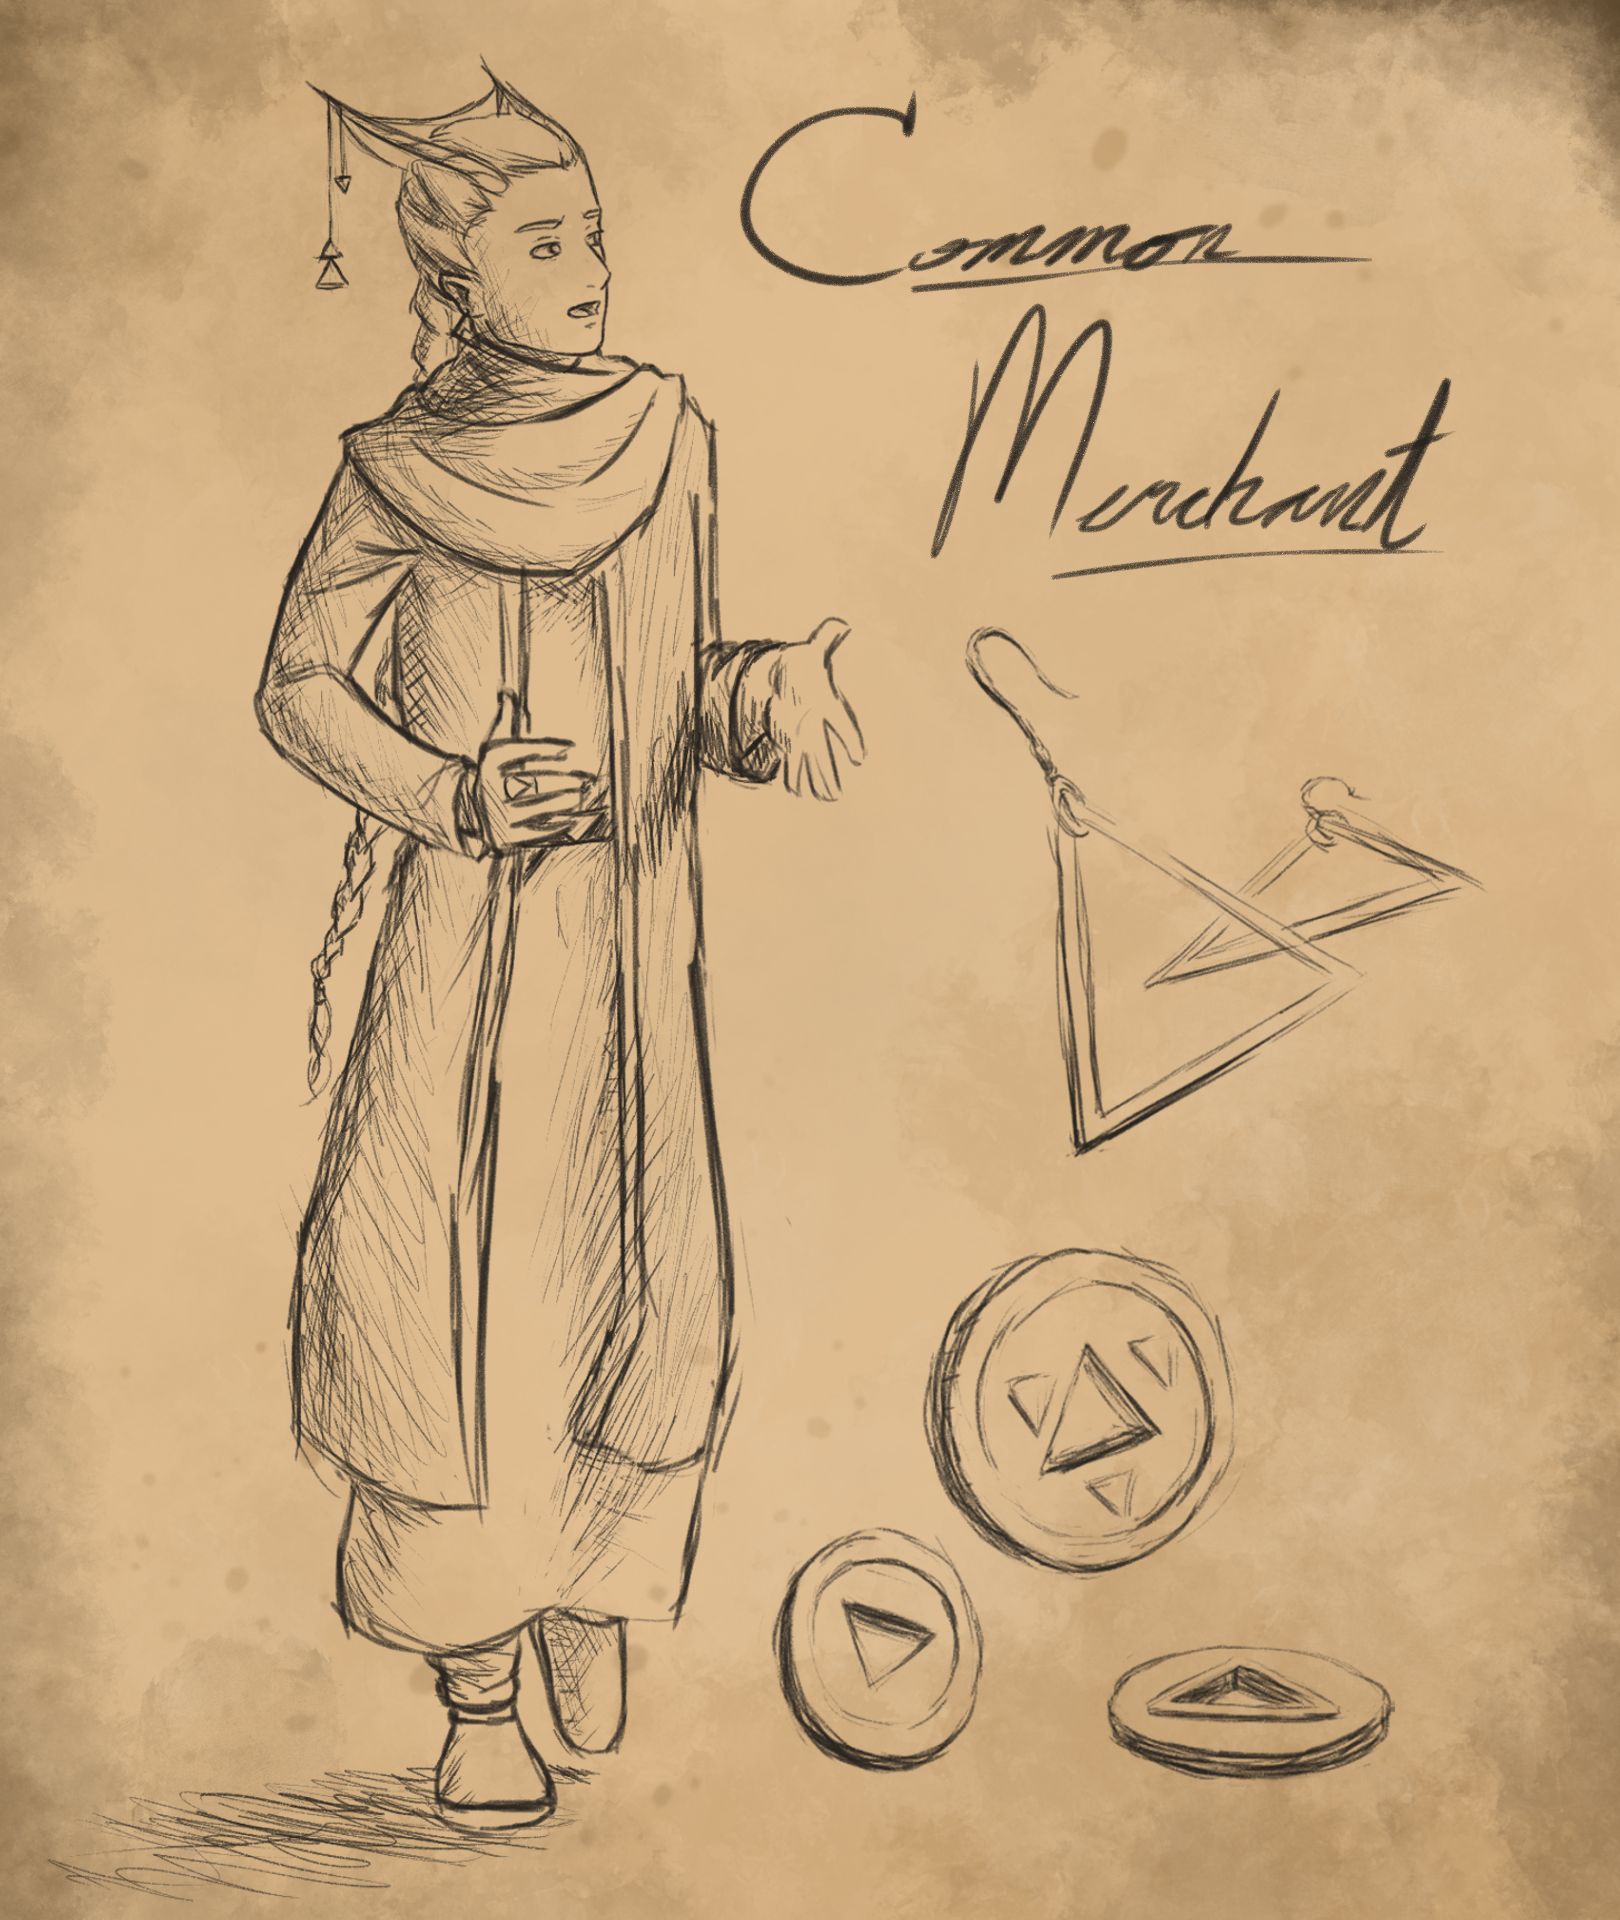 Common
Merchant